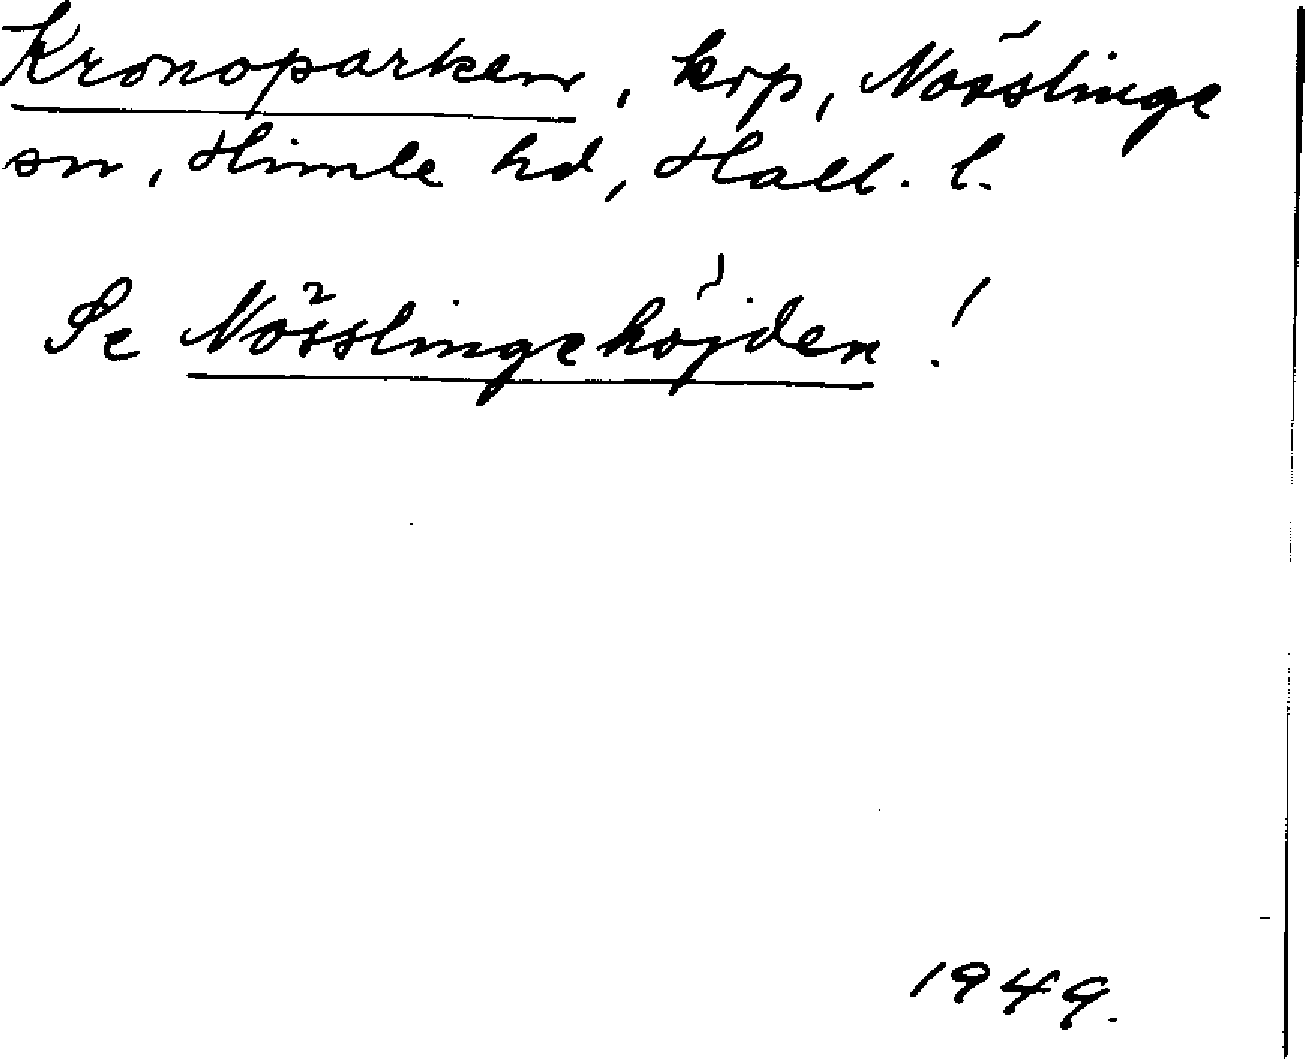 Kronoparken, krp, Nösslinge
sn, Himle hd, Hall. l.
Se Nösslingehöjden!
1949.